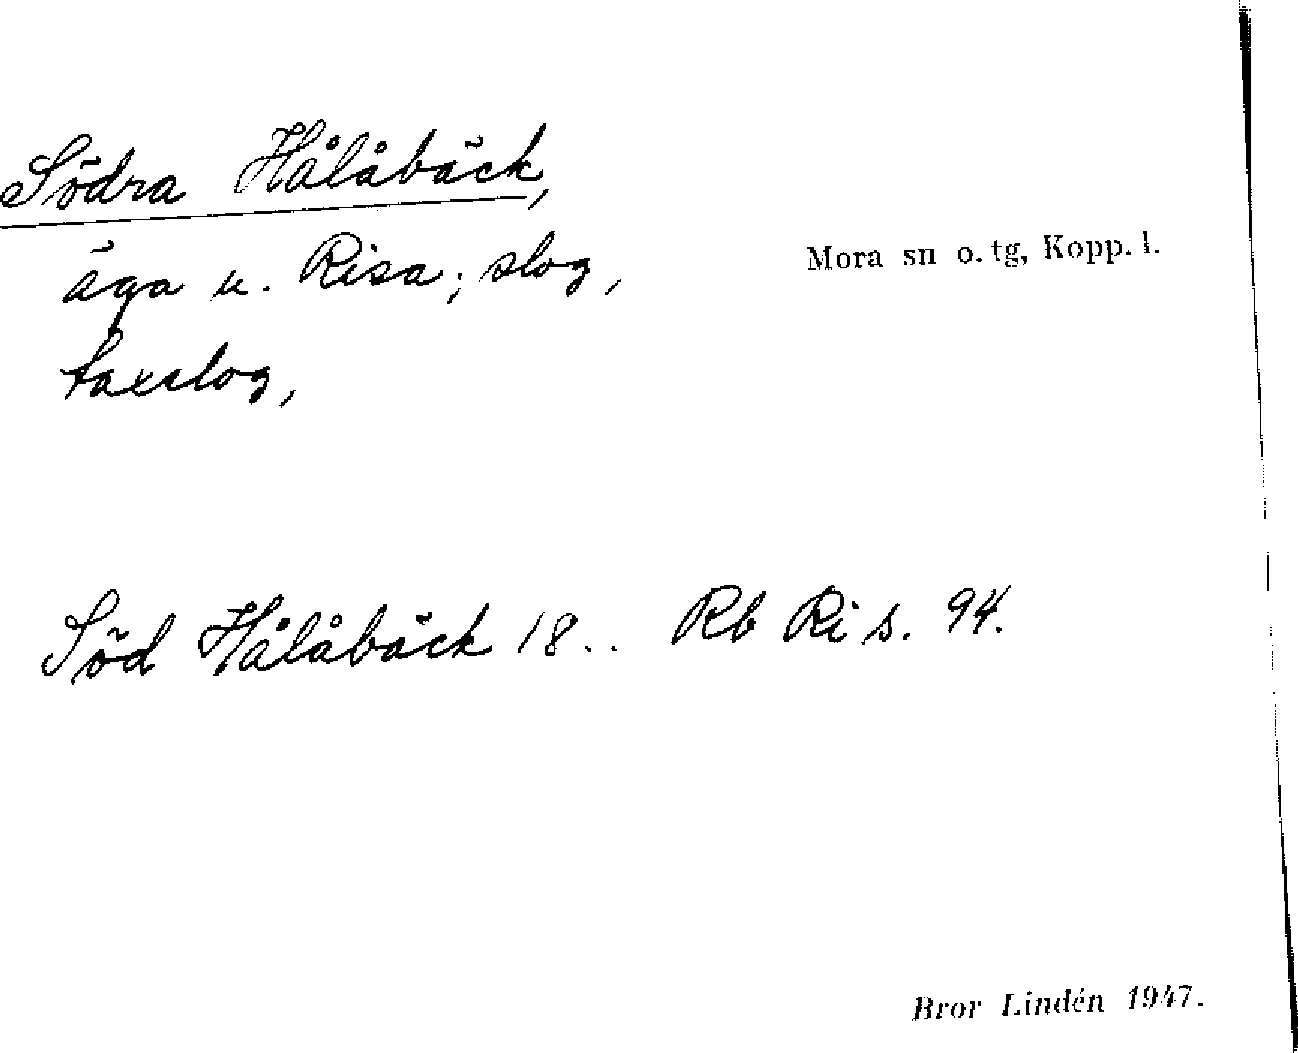 Södra Hålåbäck,
äga u. Risa; slog,
Mora sn o. tg, Kopp. l.
taxslog,
Söd Hålåbäck 18.. Rb Ris. 94.
Bror Lindén 1947.